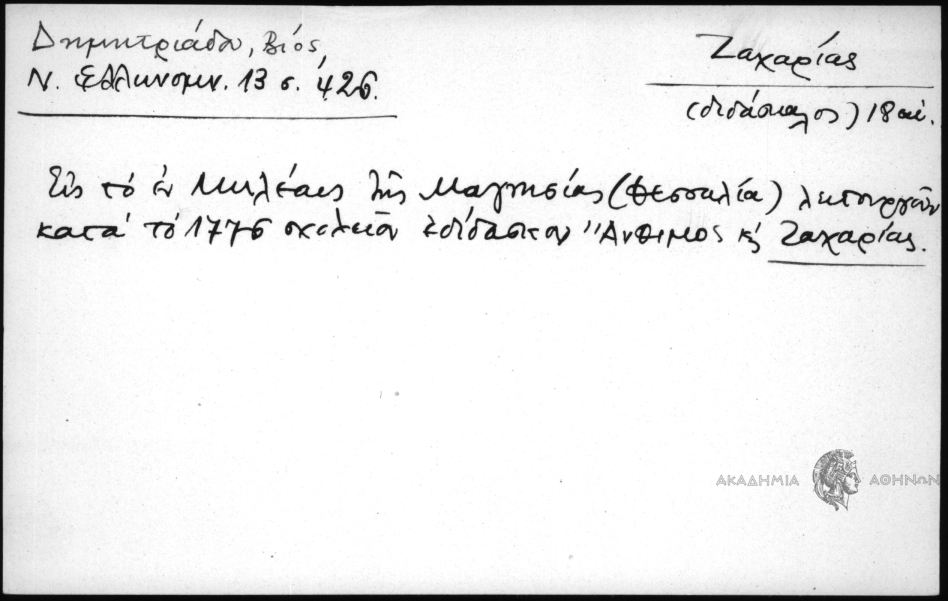 Δημητριάδου, Βιός,
Ν. Ἑλληνομν. 13 σ. 426.
Ζαχαρίας
(διδάσκαλος) 18 αἰ.
Εἰς τό ἐν Μηλέαις τῆς Μαγνησίας (Θεσσαλία) λειτουργοῦν
κατά τό 1776 σχολεῖον ἐδίδασκον Ἄνθιμος κ᾽ Ζαχαρίας.
ΑΚΑΔΗΜΙΑ ΑΘΗΝΩΝ